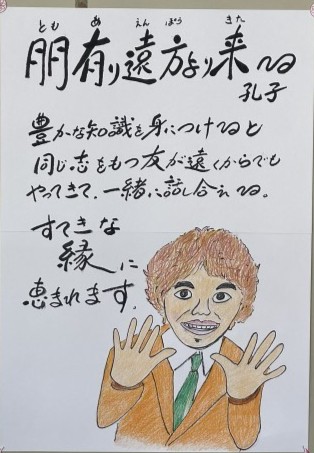 とも あ えん ぽう きた
朋有り遠方より来る
孔子
豊かな知識を身につけると
同じ志をもつ友が遠くからでも
やってきて、一緒に話し合える。
すてきな
縁に
恵まれます。